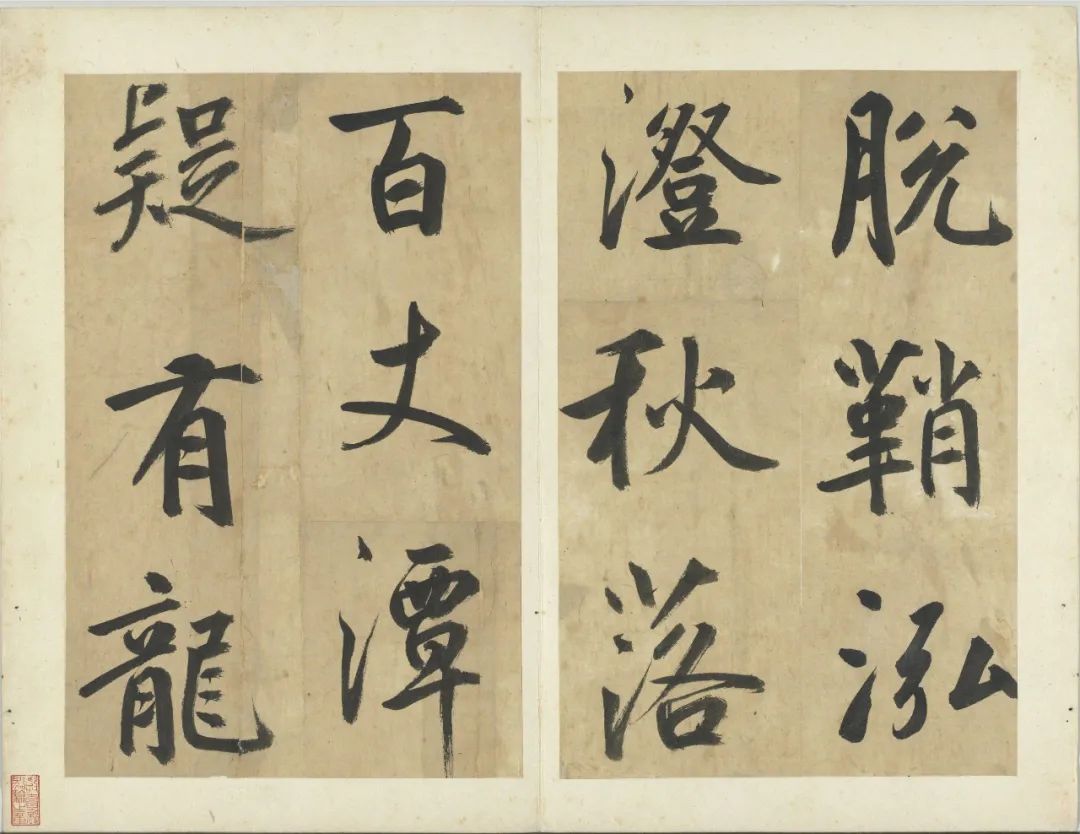 脫鞘泓
澄秋落
百丈潭
疑有龍